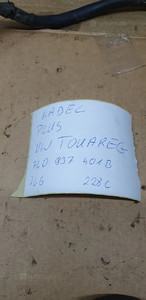 KABEL
PLUS
VW TOUAREG
7L0 937 401B
228 C